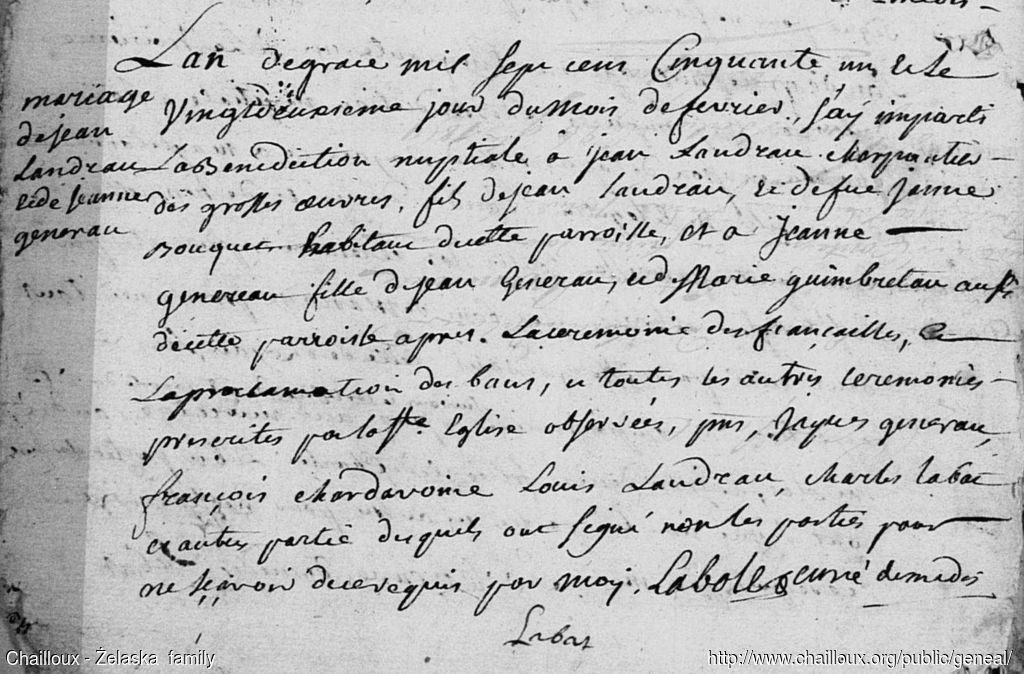 Lan degrace mil sept cens Cinquante un et le
mariage
dejean
Landrau
et de Jeanne
generau
Vingtdeuxsieme jour dumois defevrier, J'ay imparti
LaBenediction nuptiale a jean Landrau charpantier
des grosses œuvres, fils dejean landrau, et defue janne
Bouquet habitant decette parroisse, et a Jeanne
genereau fille de jean Generau, et de Marie guimbretau aussi
decette parroisse apres. Laceremonie des fiançailles, et
Laproclamation des bans, et toutes les autres ceremonies
prescrites par la Ste Eglise observées, pns, Jaques generau,
françois chardavoine Louis Landrau, charles labat
et autres partie desquels ont signé non les parties pour
ne sçavoir dece requis par moy. curé
Labat
Chailloux - Żelaska family
http://www.chailloux.org/public/geneal/